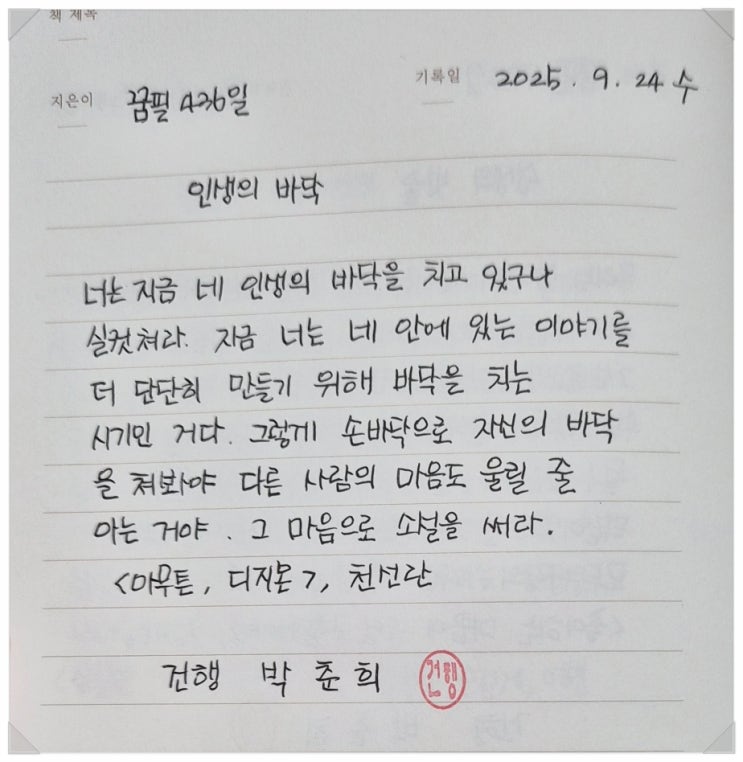 책 제목
기록일 2025. 9. 24 수
지은이 꿈필 436일
인생의 바닥
너는 지금 네 인생의 바닥을 치고 있구나
실컷쳐라. 지금 너는 네 안에 있는 이야기를
더 단단히 만들기 위해 바닥을 치는
시기인 거다. 그렇게 손바닥으로 자신의 바닥
을 쳐봐야 다른 사람의 마음도 울릴 줄
아는 거야. 그 마음으로 소설을 써라.
<아무튼, 디지몬>, 천선란
건행 박준희 건행